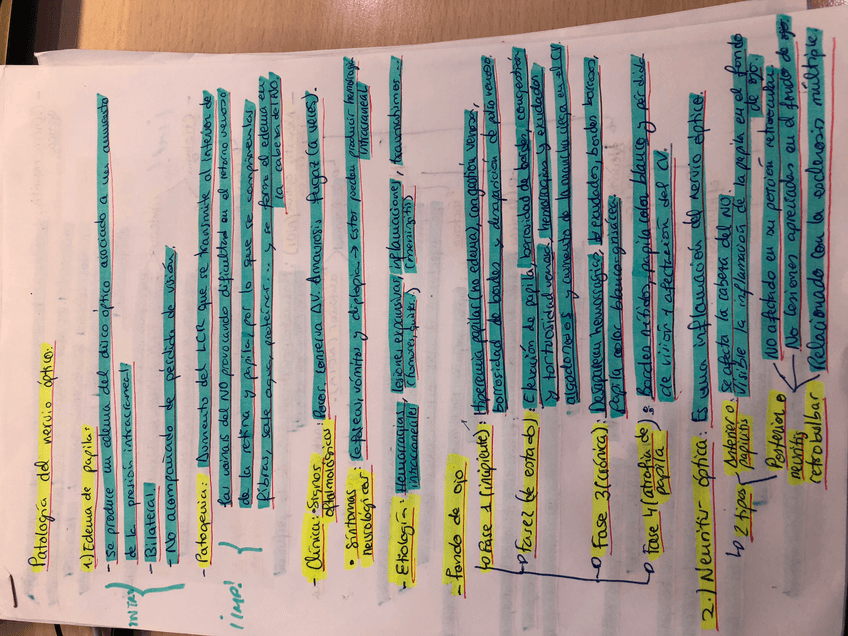 Patología del nervio óptico:
1) Edema de Papila:
- Se produce un edema del disco óptico asociado a un aumento
de la presión intracraneal
- Bilateral
- No acompañado de pérdida de visión.
- Patogenia: Aumento del LCR que se transmite al interior de
las vainas del NO provocando dificultad en el retorno venoso
de la retina y papila, por lo que se comprimen las
fibras, sale agua, proteínas... y se forma el edema en
la cabeza del NO
¡IMP!
- Clínica: Signos
oftalmológicos: Paciente conserva AV. Amaurosis fugaz (a veces).
• Síntomas
neurológicos: Cefaleas, vómitos y diplopia → Estos pueden producir hemorragia
intracraneal
- Etiología: Hemorragias, lesiones expansivas, inflamaciones, traumatismos...
intracraneales (tumores, quistes) (meningitis)
- Fondo de ojo
↳ Fase 1 (incipiente): Hiperemia papilar (no edema), congestión venosa,
borrosidad de bordes y desaparición de pulso venoso
Fase 2 (de estado): Elevación de papila, borrosidad de bordes, congestión
y tortuosidad venosa, hemorragias y exudados
algodonosos y aumento de la mancha ciega en el CV
Fase 3 (crónica): Desaparece hemorragias, exudados, bordes borrosos,
papila color blanco grisáceo
Fase 4 (atrofia de
papila): Bordes nítidos, papila color blanco y pérdida
de visión y afectación del CV.
2.) Neuritis óptica: Es una inflamación del nervio óptico
↳ 2 tipos
Anterior o
papilitis
Se afecta la cabeza del NO.
Visible la inflamación de la papila en el fondo
de ojo
Posterior o
neuritis
retrobulbar
NO afectado en su porción retroocular
No lesiones apreciadas en el fondo de ojo
Relacionado con la esclerosis múltiple